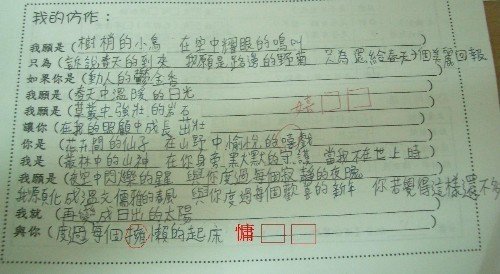 我的仿作：
我願是（樹梢的小鳥 在空中耀眼的鳴叫
只為（訴說春天的到來 我願是路邊的野菊 只為還給春天一個美麗回報
如果你是（動人的鬱金香
我願是（春天中溫暖的日光
我願是（草叢中強壯的岩石
嬉
讓你（在我的眼顧中成長 出壯
你是（花卉間的仙子 在山野中愉悅的嘻戲
我是（叢林中的山神 在你身旁默默的守護 當我不在世上時
我願是（夜空中閃爍的星 與你度過每個寂靜的夜晚
我願化成溫文儒雅的春風 與你度過每個歡喜的新年 你若覺得這樣還不夠
我就（再變成日出的太陽
與你（度過每個慵懶的起床
慵